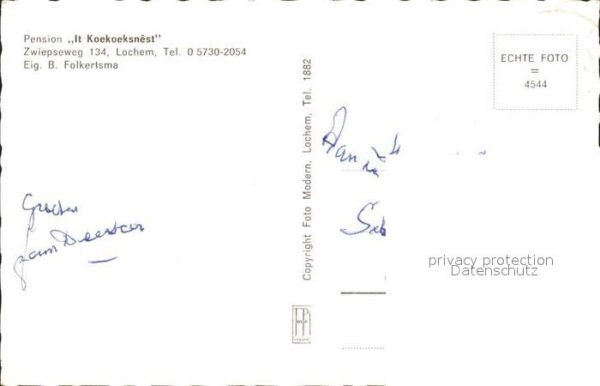 Pension „It Koekoeksnêst”
Zwiepseweg 134, Lochem, Tel. 0 5730-2054
Eig. B. Folkertsma
ECHTE FOTO
=
4544
Copyright Foto Modern, Lochem, Tel. 1882
Aan
Groeten
privacy protection
Datenschutz